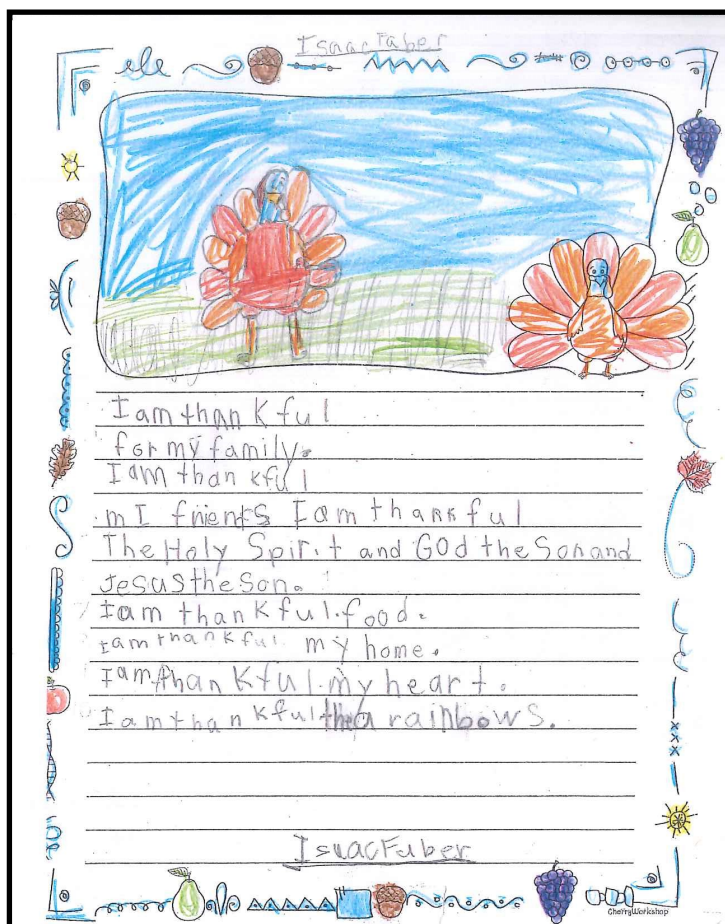 Isaac Faber
I am thankful
for my family.
I am thankful
mI friends I am thankful
The Holy Spirit and GOd the Son and
Jesus the Son.
I am thankful. food.
I am thankful my home.
I am thankful. my heart.
I am thankful the a rainbows.
Isaac Faber
CherryWorkshop